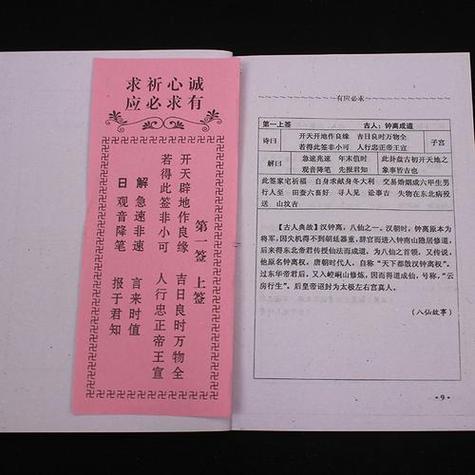 诚心祈求
有求必应
第一签 上签
开天辟地作良缘 吉日良时万物全
若得此签非小可 人行忠正帝王宣
解 急速非速 言来时值
曰 观音降笔 报于君知
有应必求
第一上签 古人：钟离成道
诗曰 开天开地作良缘 吉日良时万物全 子宫
若得此签非小可 人行忠正帝王宣
解曰 急速兆速 年未值时 此卦盘古初开天地之
观音降笔 先报君知 象事皆吉也
此签家宅祈福 自身求献身冬大利 交易婚姻成六甲生男
行人至 田蚕六畜好 寻人见 讼事吉 失物在东北病投
送 山坟吉
【古人典故】汉钟离，八仙之一。汉朝时，钟离原本为
将军，因失机得不到朝廷器重，辞官而进入钟南山隐居修道，
后来得东北帝君传授仙法而成道，为八仙之首领，又传说，
他原名钟离权，唐朝时代人，自称“天下都散汉钟离权”。
过东华帝君后，又入崆峒山修炼，因而得道成仙，号称，“云
房衍生”。后皇帝诏封为太极左右宫真人。
（八仙故事）
·9·